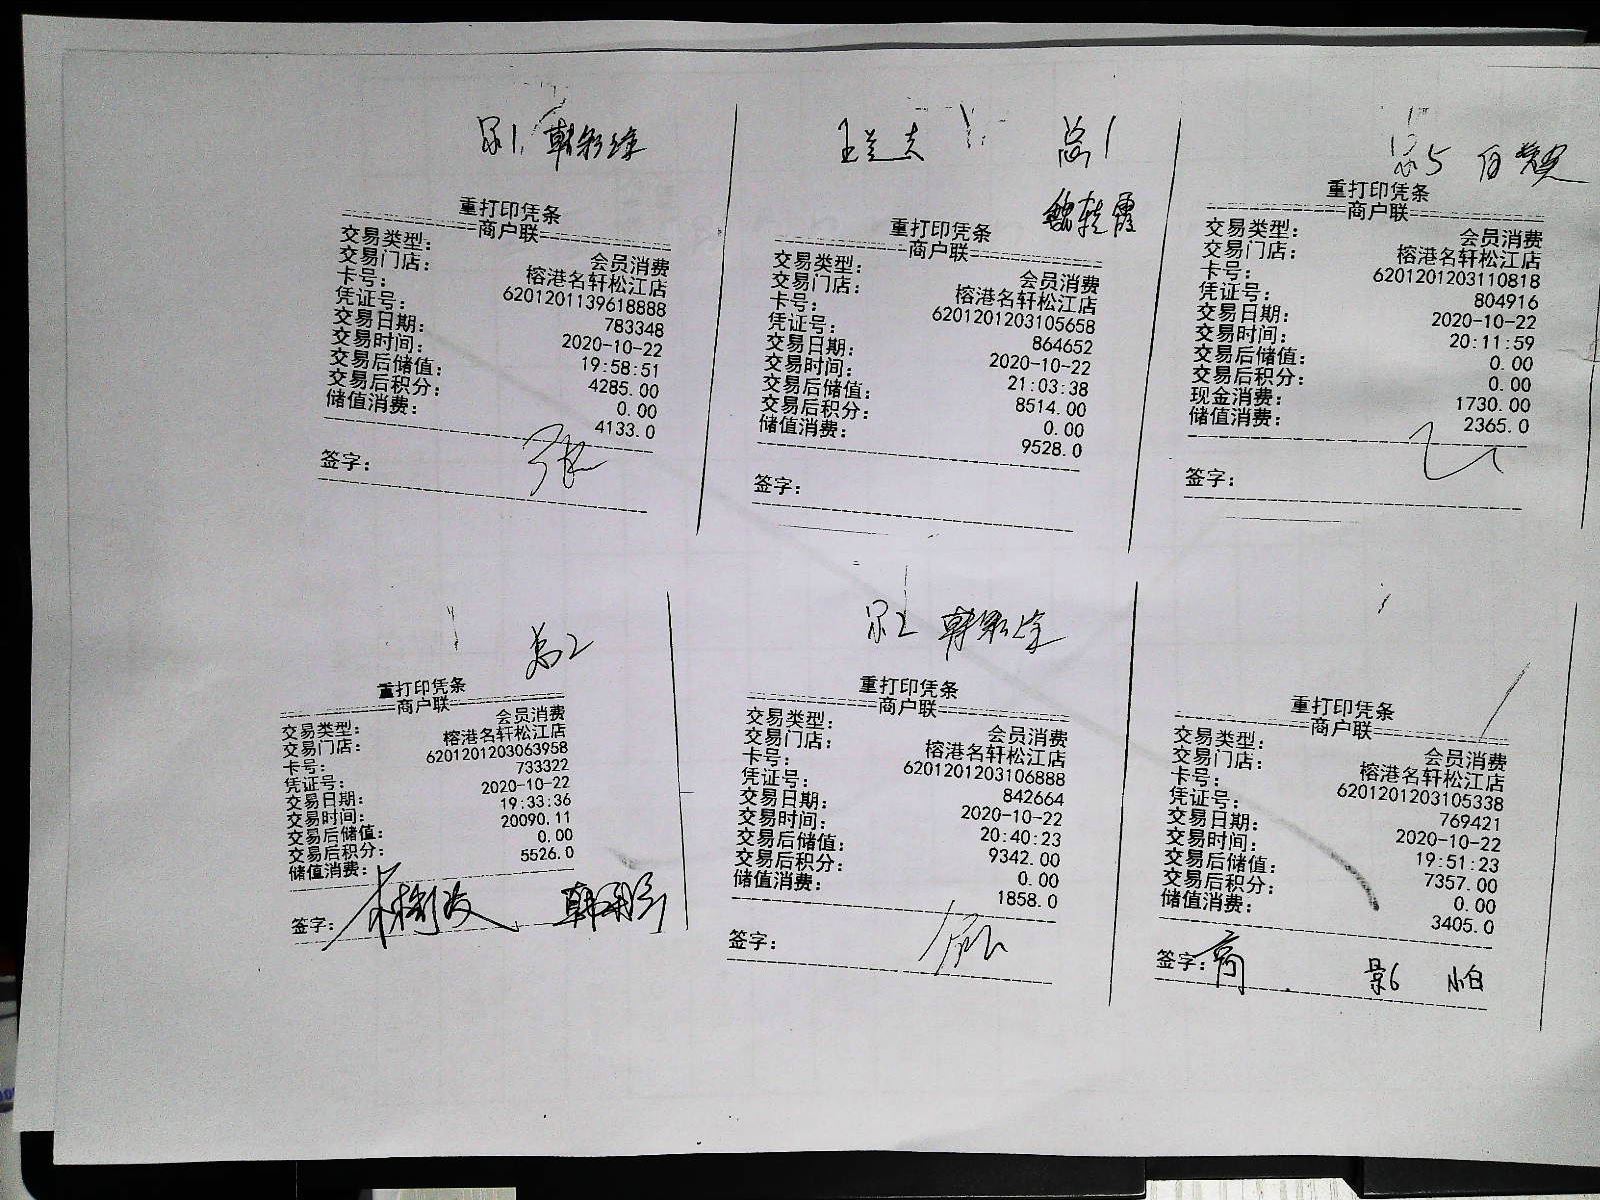 重打印凭条
商户联
交易类型： 会员消费
交易门店： 榕港名轩松江店
卡号： 6201201139618888
凭证号： 783348
交易日期： 2020-10-22
交易时间： 19:58:51
交易后储值： 4285.00
交易后积分： 0.00
储值消费： 4133.0
签字： 张
总1
重打印凭条
商户联
交易类型： 会员消费
交易门店： 榕港名轩松江店
卡号： 6201201203105658
凭证号： 864652
交易日期： 2020-10-22
交易时间： 21:03:38
交易后储值： 8514.00
交易后积分： 0.00
储值消费： 9528.0
签字：
总5
重打印凭条
商户联
交易类型： 会员消费
交易门店： 榕港名轩松江店
卡号： 6201201203110818
凭证号： 804916
交易日期： 2020-10-22
交易时间： 20:11:59
交易后储值： 0.00
交易后积分： 0.00
现金消费： 1730.00
储值消费： 2365.0
签字：
总2
重打印凭条
商户联
交易类型： 会员消费
交易门店： 榕港名轩松江店
卡号： 6201201203063958
凭证号： 733322
交易日期： 2020-10-22
交易时间： 19:33:36
交易后储值： 20090.11
交易后积分： 0.00
储值消费： 5526.0
签字：
重打印凭条
商户联
交易类型： 会员消费
交易门店： 榕港名轩松江店
卡号： 6201201203106888
凭证号： 842664
交易日期： 2020-10-22
交易时间： 20:40:23
交易后储值： 9342.00
交易后积分： 0.00
储值消费： 1858.0
签字：
重打印凭条
商户联
交易类型： 会员消费
交易门店： 榕港名轩松江店
卡号： 6201201203105338
凭证号： 769421
交易日期： 2020-10-22
交易时间： 19:51:23
交易后储值： 7357.00
交易后积分： 0.00
储值消费： 3405.0
签字： 影6 小白